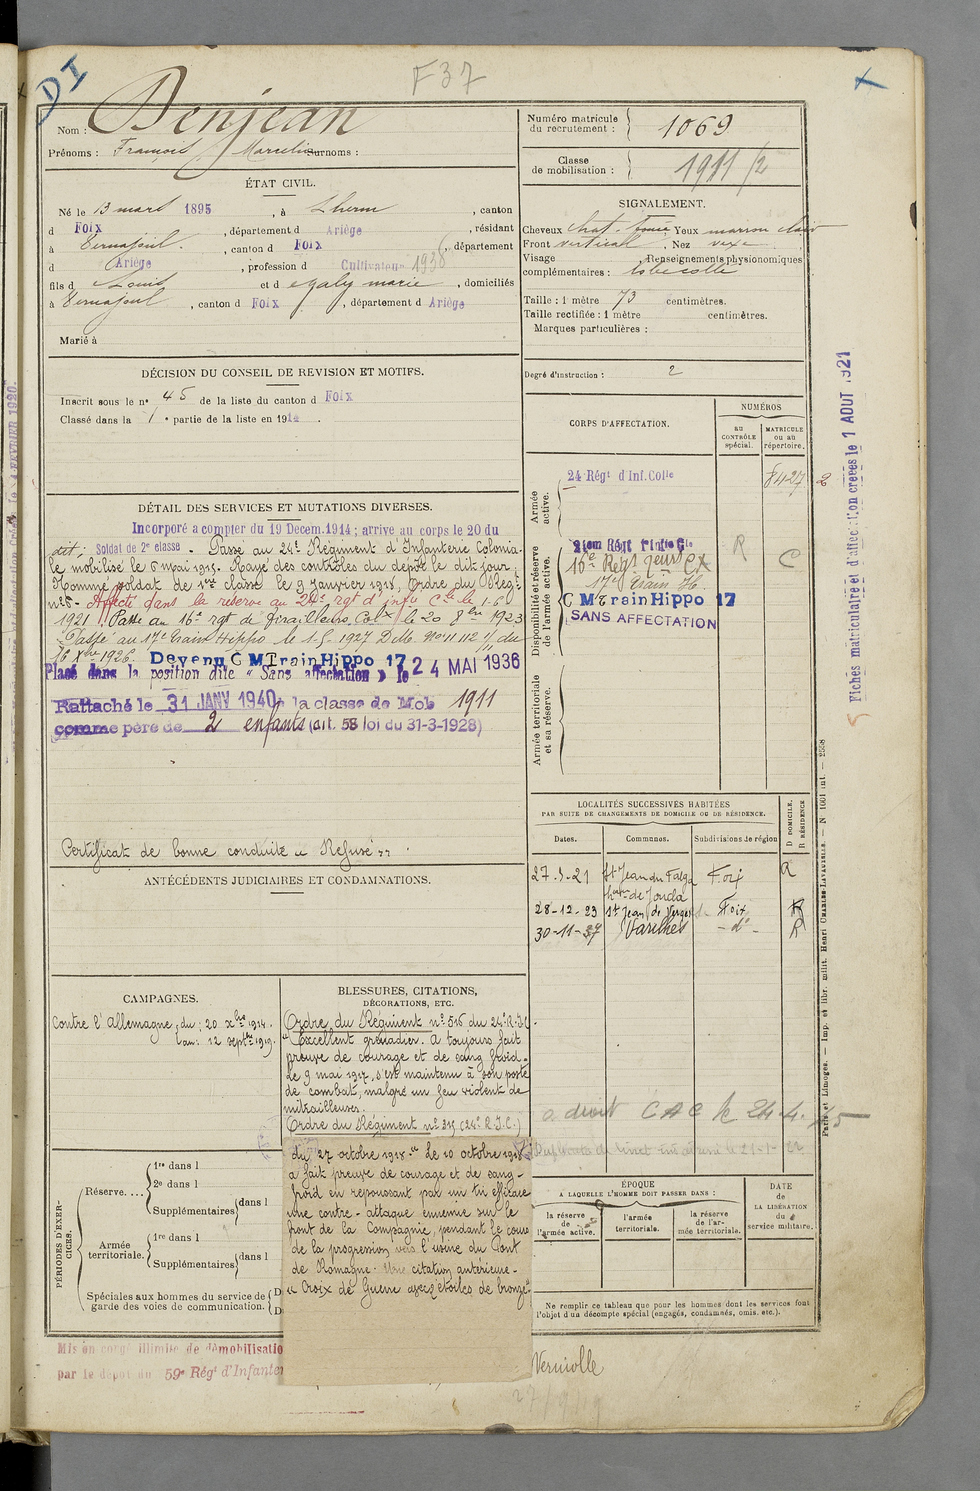 DI
F 37
Nom : Denjean
Prénoms : François Marcelin Surnoms :
Numéro matricule du recrutement : 1069
Classe de mobilisation : 1911/2
ÉTAT CIVIL.
Né le 13 mars 1895, à Lherm, canton
d Foix, département d Ariège, résidant
à Vernajoul, canton d Foix, département
d Ariège, profession d Cultivateur 1936
fils d Louis et d marie, domiciliés
à Vernajoul, canton d Foix, département d Ariège
Marié à
SIGNALEMENT.
Cheveux chat. foncé Yeux marron clair
Front vertical, Nez vexe
Visage , Renseignements physionomiques
complémentaires : lobe collé
Taille : 1 mètre 73 centimètres.
Taille rectifiée : 1 mètre centimètres.
Marques particulières :
Degré d'instruction : 2
DÉCISION DU CONSEIL DE REVISION ET MOTIFS.
Inscrit sous le n° 45 de la liste du canton d Foix
Classé dans la 1e partie de la liste en 1914.
CORPS D'AFFECTATION.
NUMÉROS
AU CONTRÔLE spécial.
MATRICULE ou au répertoire.
Armée active.
24 Régt d'Inf. Colle
8427 2
Disponibilité et réserve de l'armée active.
16e Regt Cx
17e Train H.
C M Train Hippo 17
SANS AFFECTATION
R
C
Armée territoriale et sa réserve.
DÉTAIL DES SERVICES ET MUTATIONS DIVERSES.
Incorporé a compter du 19 Decem. 1914 ; arrivé au corps le 20 du
dit ; Soldat de 2e classe - Passé au 24e Régiment d'Infanterie Colonia-
le mobilisé le 6 mai 1915. Rayé des contrôles du dépôt le dit jour.
Nommé soldat de 1ère classe le 9 Janvier 1918, Ordre du Régt
n°5 - Affecté dans la reserve au 24e rgt d'infie Cle le 1-6
1921 Passé au 16e rgt de Tirailleurs Colx le 20 8bre 1923
Passé au 17e Train Hippo le 1.5.1927 D.M. N° 11.112 1/11 du
16 Xbre 1926. Devenu C M Train Hippo 17
Placé dans la position dite « Sans affectation » le 24 MAI 1936
Rattaché le 31 JANV 1940 à la classe de Mob 1911
comme père de 2 enfants (art. 58 loi du 31-3-1928)
Certificat de bonne conduite « Refusé ».
ANTÉCÉDENTS JUDICIAIRES ET CONDAMNATIONS.
LOCALITÉS SUCCESSIVES HABITÉES
PAR SUITE DE CHANGEMENTS DE DOMICILE OU DE RÉSIDENCE.
Dates. Communes. Subdivisions de région
D DOMICILE. R RÉSIDENCE
27-3-21 St Jean du Falga Foix
28-12-23 St Jean de Verges Foix R
30-11-37 Varilhes - do - R
CAMPAGNES.
Contre l'Allemagne, du : 20 Xbre 1914.
au : 12 septbre 1919.
BLESSURES, CITATIONS,
DÉCORATIONS, ETC.
Ordre du Régiment n° 516 du 24e R.I.C.
"Excellent grenadier. A toujours fait
preuve de courage et de sang froid.
Le 9 mai 1917, s'est maintenu à son poste
de combat, malgré un feu violent de
mitrailleuses.
Ordre du Régiment n° 319 (24e R.I.C.)
du 27 octobre 1918. "Le 10 octobre 1918
a fait preuve de courage et de sang-
froid en repoussant par un tir efficace
une contre-attaque ennemie sur le
front de la Compagnie, pendant le cours
de la progression vers l'usine du Pont
de Romagne. Une citation antérieure -
« Croix de Guerre avec étoiles de bronze »
a droit CAC le 24.4.45
PÉRIODES D'EXERCICES.
Réserve....
1re dans l
2e dans l
Supplémentaires dans l
Armée territoriale.
1re dans l
Supplémentaires dans l
Spéciales aux hommes du service de
garde des voies de communication.
D
D
ÉPOQUE
A LAQUELLE L'HOMME DOIT PASSER DANS :
la réserve de l'armée active.
l'armée territoriale.
la réserve de l'armée territoriale.
DATE de LA LIBÉRATION du service militaire.
Ne remplir ce tableau que pour les hommes dont les services font
l'objet d'un décompte spécial (engagés, condamnés, omis, etc.).
Mis en congé illimité de démobilisatio
par le dépôt du 59e Régt d'Infanter
Verniolle
Fiches matriculaire et d'affectation créées le 1 AOUT 1921
Paris et Limoges. — Imp. et libr. milit. Henri CHARLES-LAVAUZELLE. — N° 1001 int. — 2558